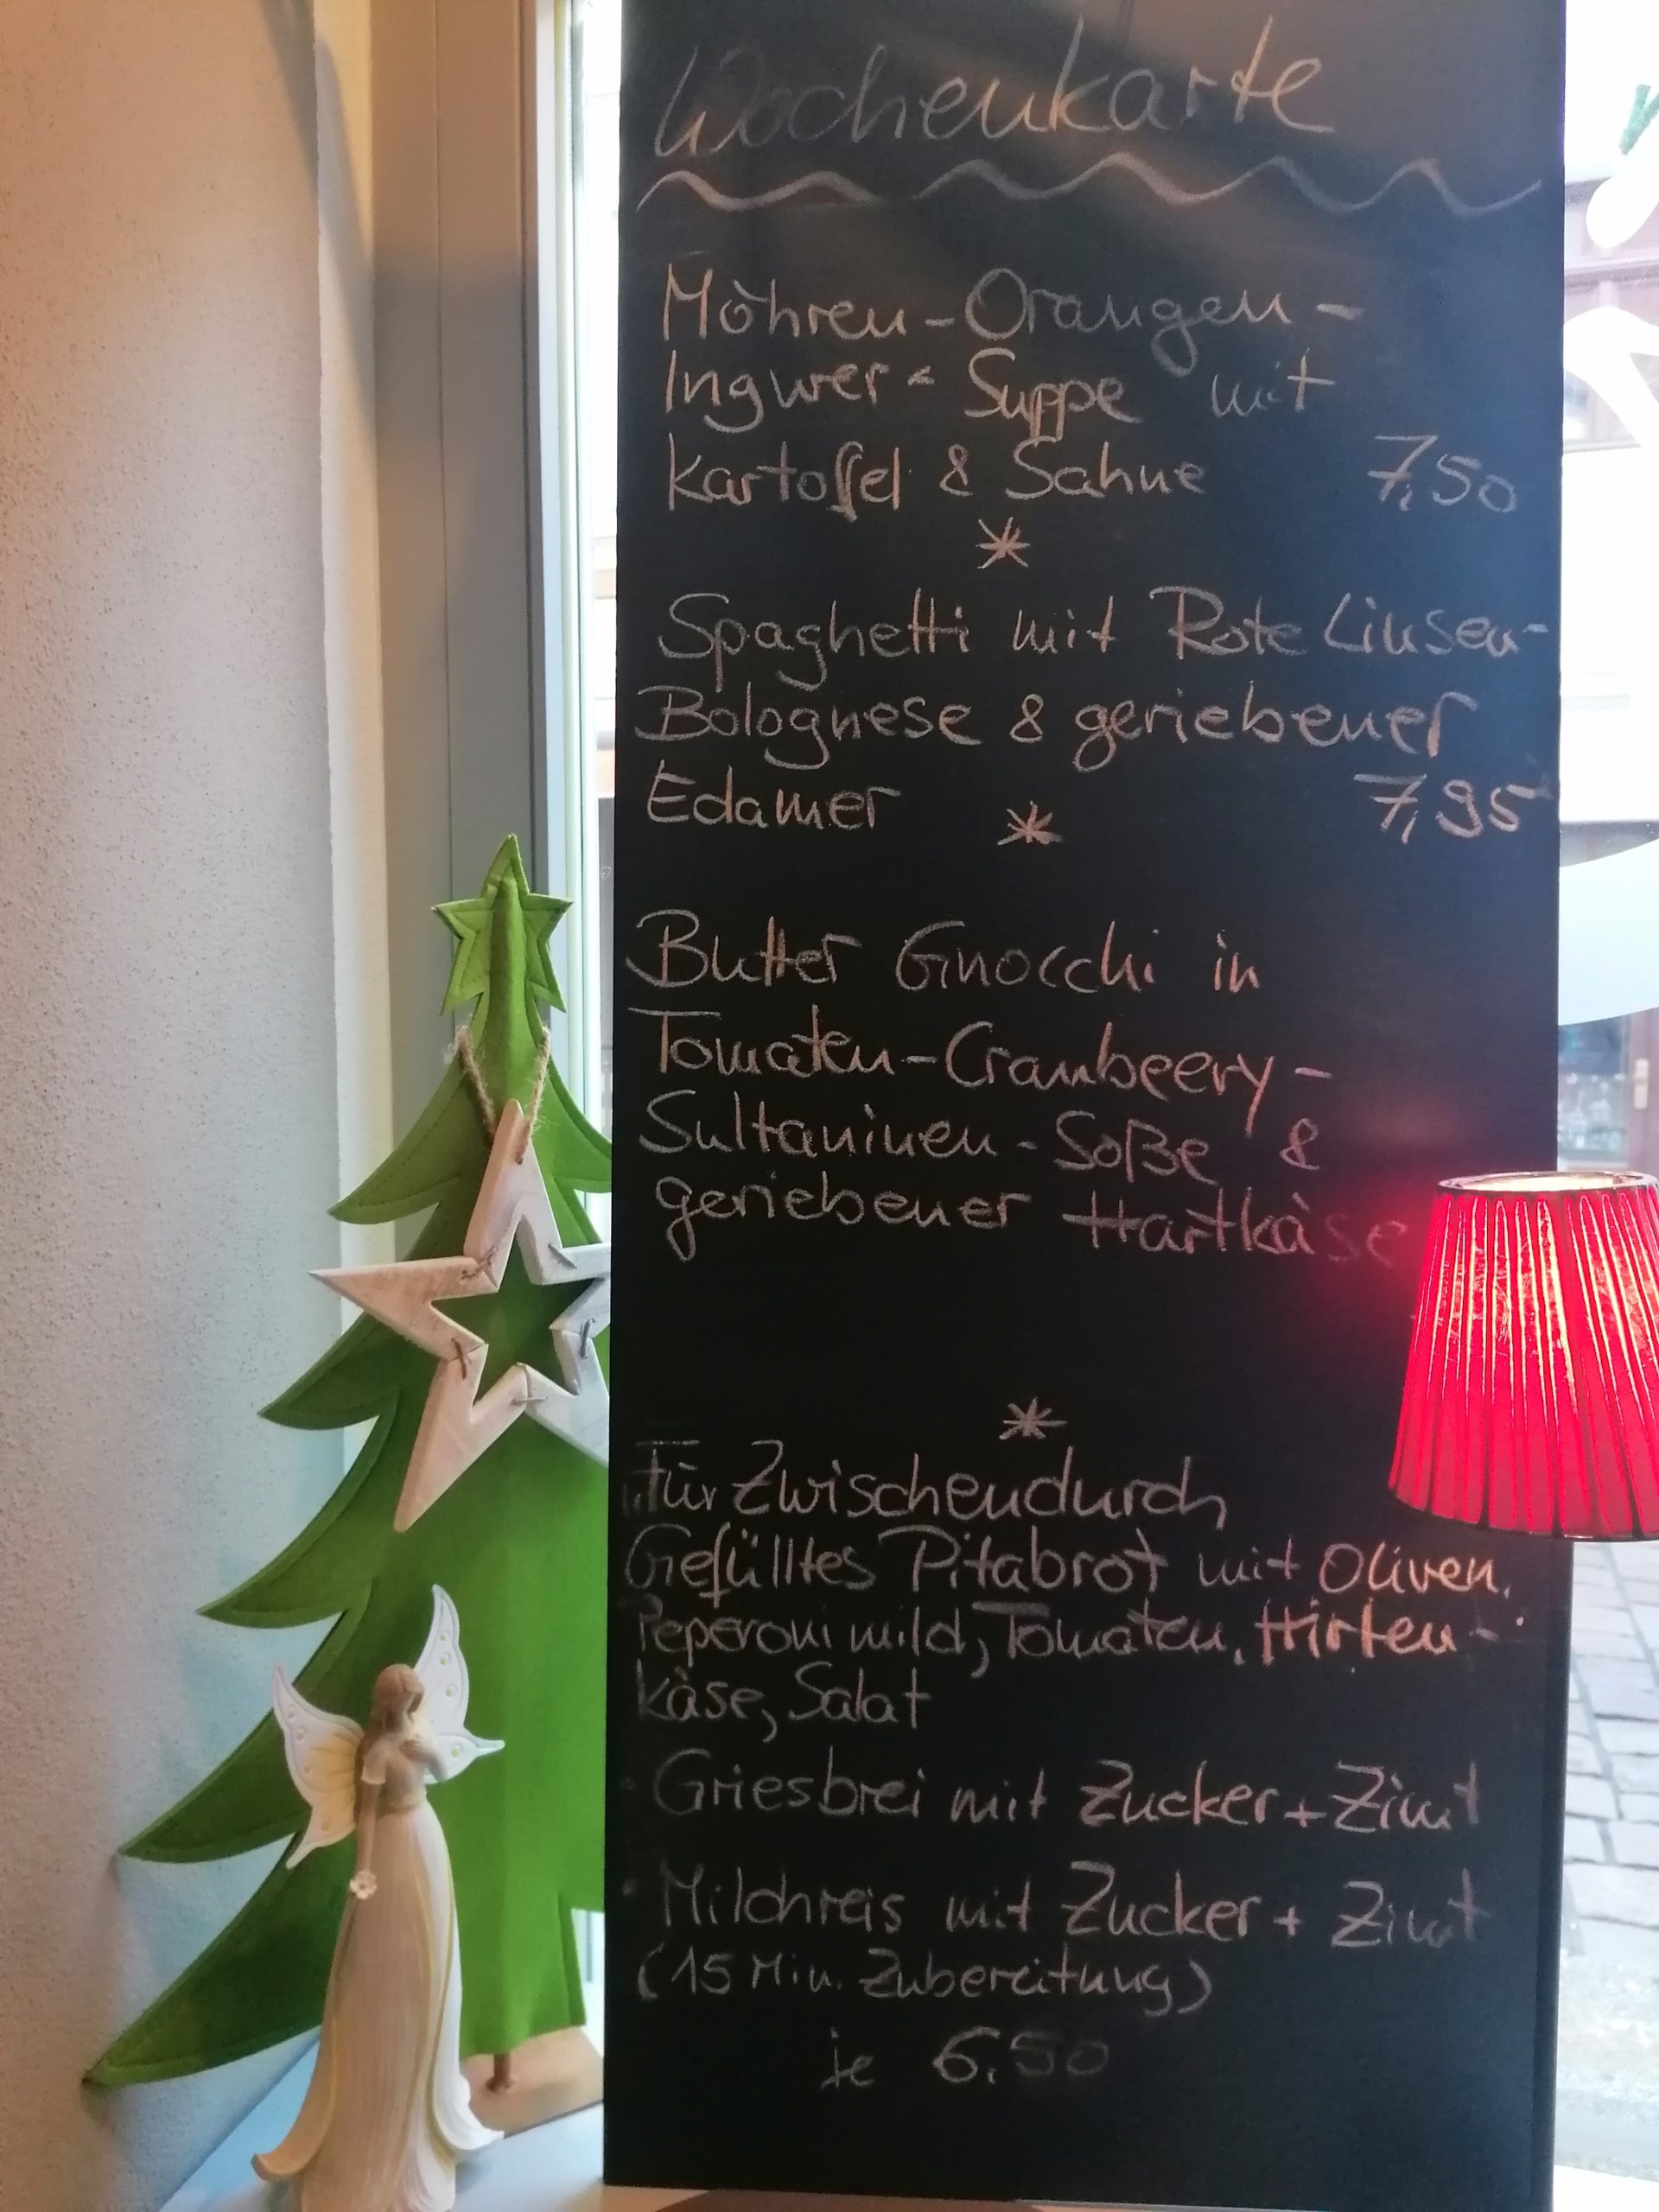 Wochenkarte
Möhren-Orangen-
Ingwer-Suppe mit
Kartoffel & Sahne 7,50
*
Spaghetti mit Rote Linsen-
Bolognese & geriebener
Edamer * 7,95
Butter Gnocchi in
Tomaten-Cranbeery-
Sultaninen-Soße &
geriebener Hartkäse
*
Für Zwischendurch
Gefülltes Pitabrot mit Oliven,
Peperoni mild, Tomaten, Hirten-
käse, Salat
Griesbrei mit Zucker + Zimt
Milchreis mit Zucker + Zimt
(15 Min. Zubereitung)
je 6,50